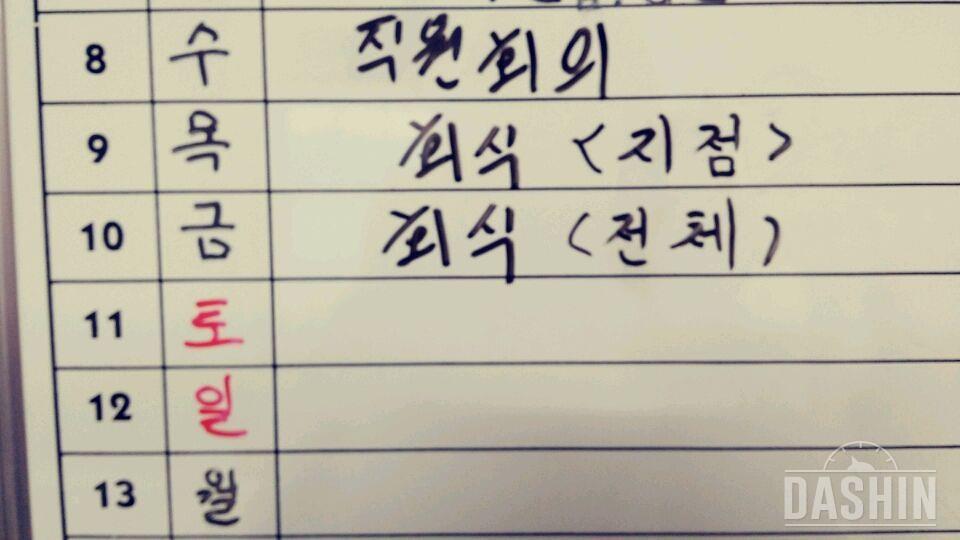 8 수 직원회의
9 목 회식 <지점>
10 금 회식 (전체)
11 토
12 일
13 월
DASHIN